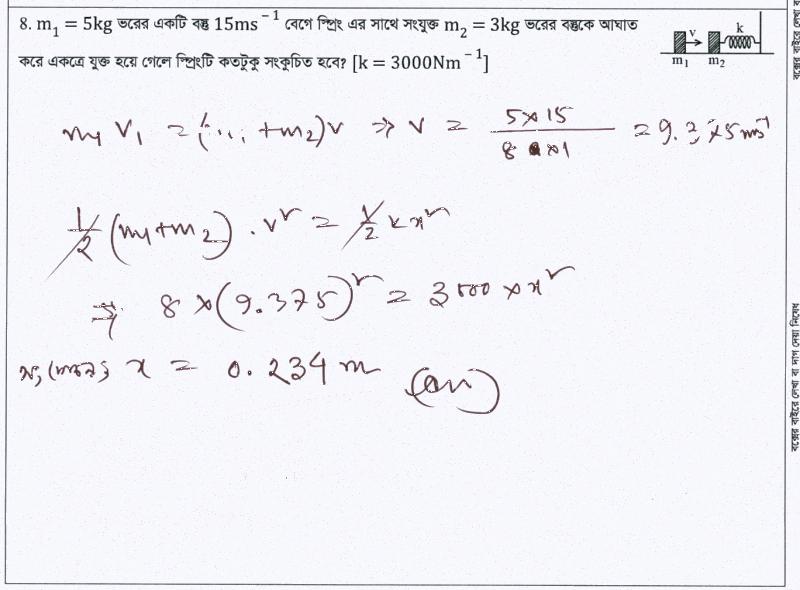 8. m₁ = 5kg ভরের একটি বস্তু 15ms⁻¹ বেগে স্প্রিং এর সাথে সংযুক্ত m₂ = 3kg ভরের বস্তুকে আঘাত
করে একত্রে যুক্ত হয়ে গেলে স্প্রিংটি কতটুকু সংকুচিত হবে? [k = 3000Nm⁻¹]
v k
m₁ m₂
m₁ V₁ = ( + m₂)v ⇒ v = 5×15 / 8 = 9.375 ms⁻¹
1/2 (m₁+m₂) . v² = 1/2 k x²
⇒ 8 × (9.375)² = 3000 × x²
x = 0.234 m (Ans)
বক্সের বাইরে লেখা বা দাগ দেয়া নিষেধ